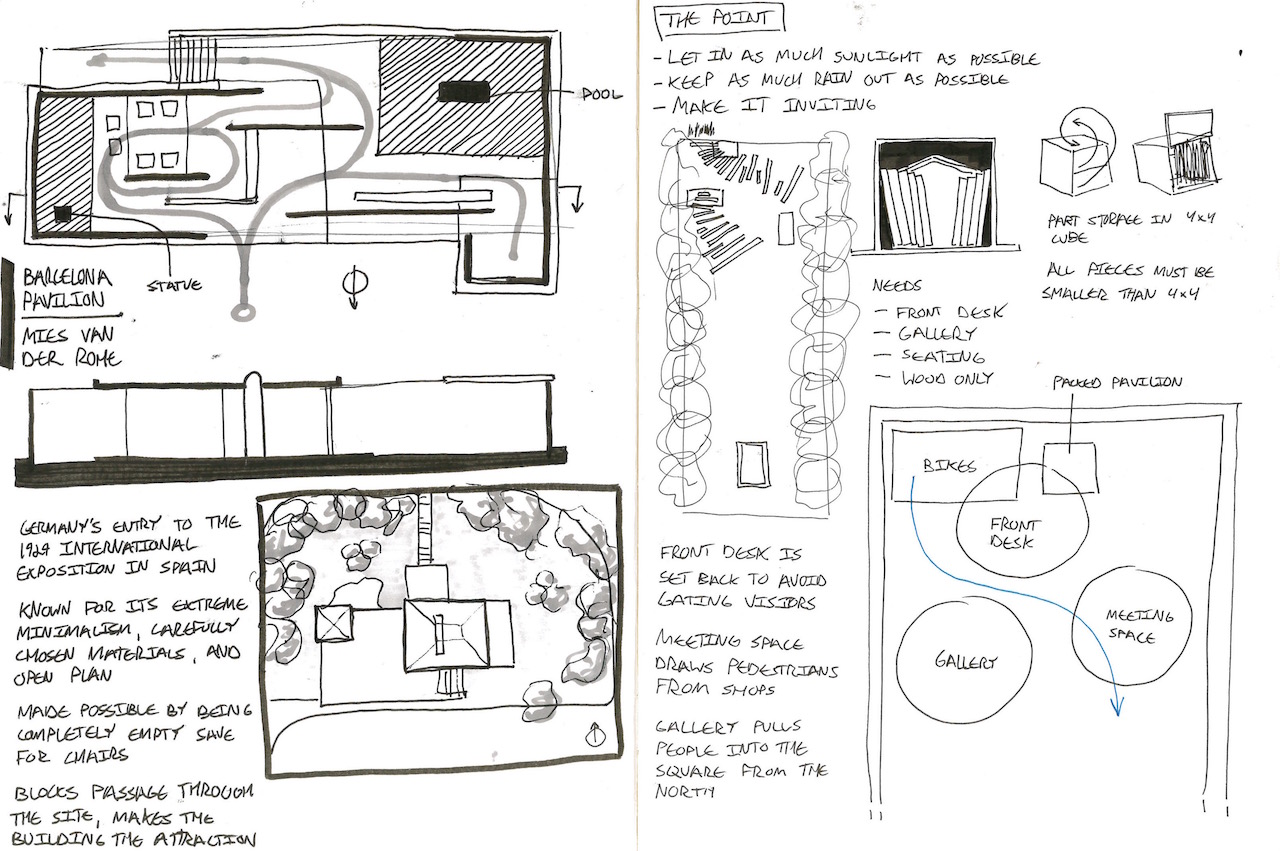 POOL
STATUE
BARCELONA
PAVILION
MIES VAN
DER ROHE
GERMANY'S ENTRY TO THE
1929 INTERNATIONAL
EXPOSITION IN SPAIN
KNOWN FOR ITS EXTREME
MINIMALISM, CAREFULLY
CHOSEN MATERIALS, AND
OPEN PLAN
MADE POSSIBLE BY BEING
COMPLETELY EMPTY SAVE
FOR CHAIRS
BLOCKS PASSAGE THROUGH
THE SITE, MAKES THE
BUILDING THE ATTRACTION
THE POINT
- LET IN AS MUCH SUNLIGHT AS POSSIBLE
- KEEP AS MUCH RAIN OUT AS POSSIBLE
- MAKE IT INVITING
PART STORAGE IN 4x4
CUBE
ALL PIECES MUST BE
SMALLER THAN 4x4
NEEDS
- FRONT DESK
- GALLERY
- SEATING
- WOOD ONLY
PACKED PAVILION
BIKES
FRONT
DESK
MEETING
SPACE
GALLERY
FRONT DESK IS
SET BACK TO AVOID
GATING VISIORS
MEETING SPACE
DRAWS PEDESTRIANS
FROM SHOPS
GALLERY PULLS
PEOPLE INTO THE
SQUARE FROM THE
NORTH